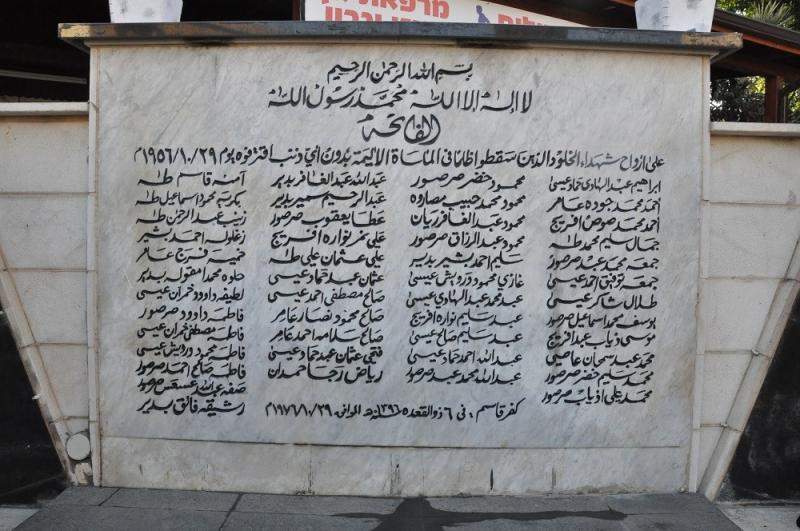 מרפאות
בסם الله الرحمن الرحيم
لا اله الا الله محمد رسول الله
الفاتحة
على ارواح شهداء الخلود الذين سقطوا ظلما في المأساة الأليمة بدون اي ذنب اقترفوه يوم ٢٩/١٠/١٩٥٦م
ابراهيم عبد الهادي حماد عيسى
احمد محمد جوده عامر
احمد محمد صوص افريج
جمال سليم محمد طه
جمعه محمد عبد صرصور
جمعه توفيق احمد عيسى
طلال شاكر عيسى
يوسف محمد اسماعيل صرصور
موسى ذياب عبد افريج
محمد عبد سمحان عاصي
محمد سليم خضر صرصور
محمد علي اذياب صرصور
محمود خضر صرصور
محمود محمد حبيب مصاروه
محمود عبد الغافر ريان
محمود عبد الرزاق صرصور
سليم احمد بشير بدير
غازي محمود درويش عيسى
عبد محمد عبد الهادي عيسى
عبد سليم نواره افريج
عبد سليم صالح عيسى
عبد الله احمد حماد عيسى
عبد الله محمد عبد صرصور
عبد الله عبد الغافر بدير
عبد الرحيم سمير بدير
عطا يعقوب صرصور
علي نمر نواره افريج
علي عثمان علي طه
عثمان عبد حماد عيسى
صالح مصطفى احمد عيسى
صالح محمود نصار عامر
صالح سلامه احمد عامر
فتحي عثمان عبد حماد عيسى
رياض رجا حمدان
آمنه قاسم طه
بكريه محمود اسماعيل طه
زينب عبد الرحمن طه
زغلوله احمد بشير
خميسه فرج عامر
حلوه محمد بدير
لطيفه داوود عيسى
فاطمه داوود صرصور
فاطمه مصطفى عيسى
فاطمه محمود درويش عيسى
فاطمه صالح احمد صرصور
صفيه عبد الله صرصور
رشيقه فائق بدير
كفر قاسم، في ٦ ذو القعده ١٣٩٦ هـ الموافق ٢٩/١٠/١٩٧٦م